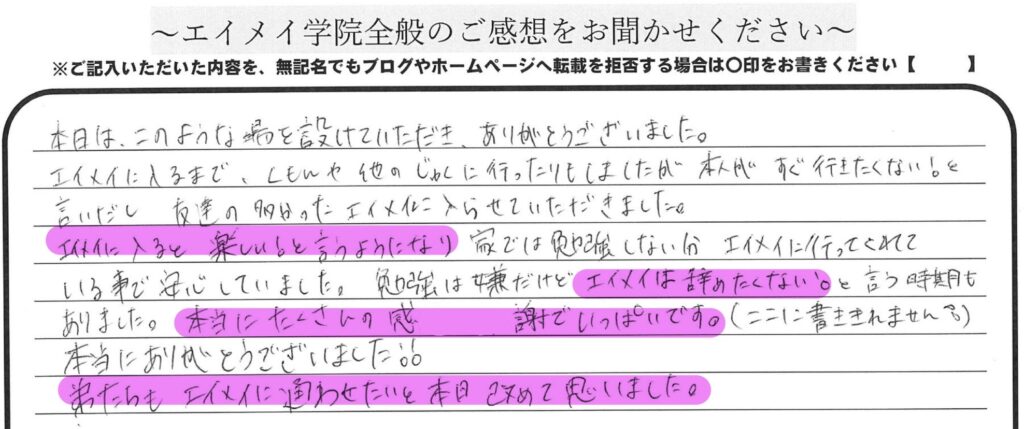 ～エイメイ学院全般のご感想をお聞かせください～
※ご記入いただいた内容を、無記名でもブログやホームページへ転載を拒否する場合は〇印をお書きください【　　　】
本日は、このような場を設けていただき、ありがとうございました。
エイメイに入るまで、くもんや他のじゅくに行ったりもしましたが 本人が すぐ行きたくない!と
言いだし 友達の多かったエイメイに入らせていただきました。
エイメイに入ると 楽しい!と言うようになり 家では勉強しない分 エイメイに行ってくれて
いる事で安心していました。勉強は嫌だけど エイメイは辞めたくない。と言う時期も
ありました。本当にたくさんの感　　　謝でいっぱいです。(ここに書ききれません)
本当にありがとうございました
弟たちも エイメイに通わせたいと本日 改めて思いました。